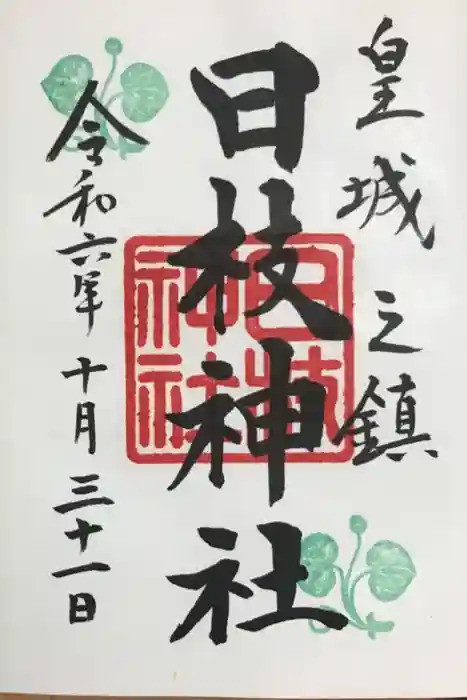 皇城之鎮
日枝神社
令和六年十月三十一日
日枝神社